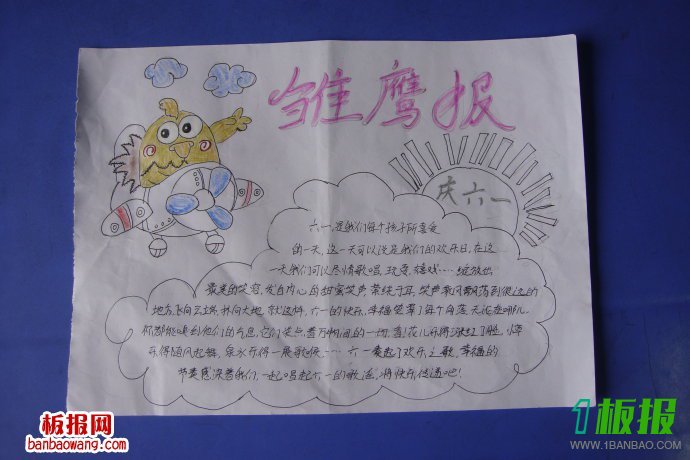 雏鹰报
庆六一
六一,是我们每个孩子所喜爱
的一天,这一天可以说是我们的欢乐日,在这
一天我们可以尽情歌唱,玩耍,嬉戏……绽放出
最美的笑容,发自内心的甜蜜笑声,萦绕于耳,笑声乘风飘荡到很远的
地方,飞向云端,扑向大地,就这样,六一的快乐,幸福笼罩了每个角落,无论在哪儿,
你都能嗅到他们的气息,它们装点着万物间的一切,
乐得随风起舞,泉水乐得一展歌喉……六一奏起了欢乐之歌,幸福的
节奏感染着我们,一起唱起六一的歌谣,将快乐传递吧!
板报网
banbaowang.com
1板报
WWW.1BANBAO.COM